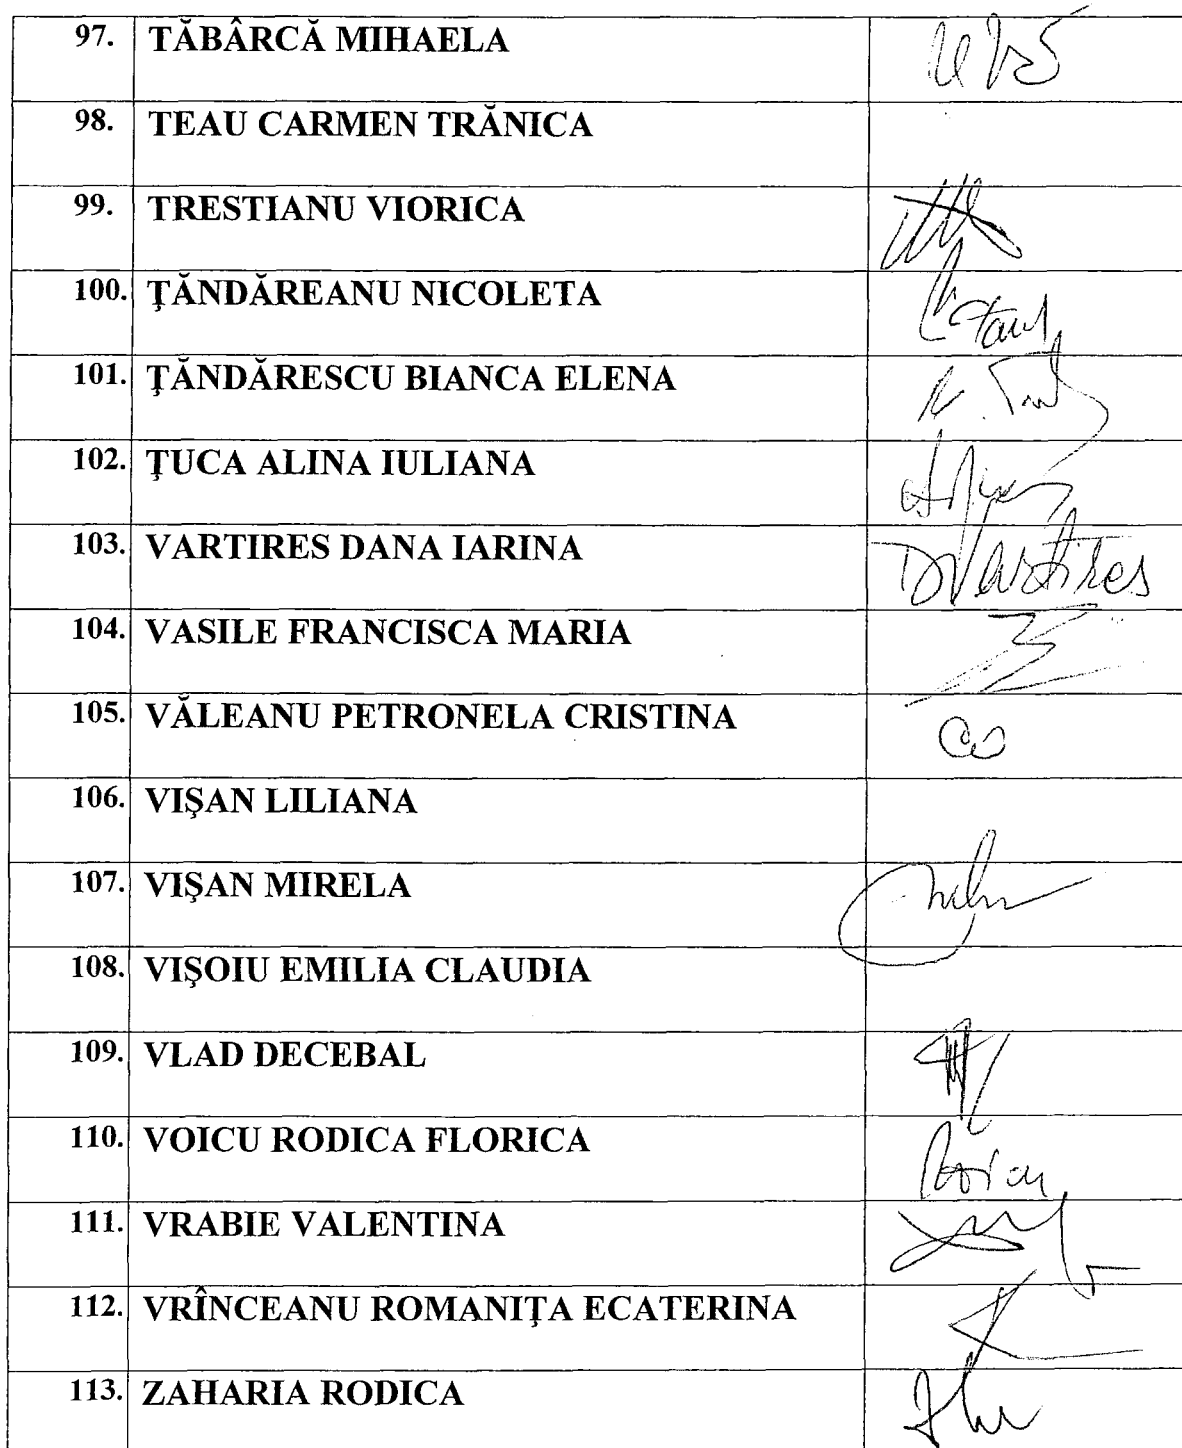 97. TĂBÂRCĂ MIHAELA
98. TEAU CARMEN TRĂNICA
99. TRESTIANU VIORICA
100. ŢĂNDĂREANU NICOLETA
101. ŢĂNDĂRESCU BIANCA ELENA
102. ŢUCA ALINA IULIANA
103. VARTIRES DANA IARINA DVartires
104. VASILE FRANCISCA MARIA
105. VĂLEANU PETRONELA CRISTINA
106. VIŞAN LILIANA
107. VIŞAN MIRELA
108. VIŞOIU EMILIA CLAUDIA
109. VLAD DECEBAL
110. VOICU RODICA FLORICA
111. VRABIE VALENTINA
112. VRÎNCEANU ROMANIŢA ECATERINA
113. ZAHARIA RODICA